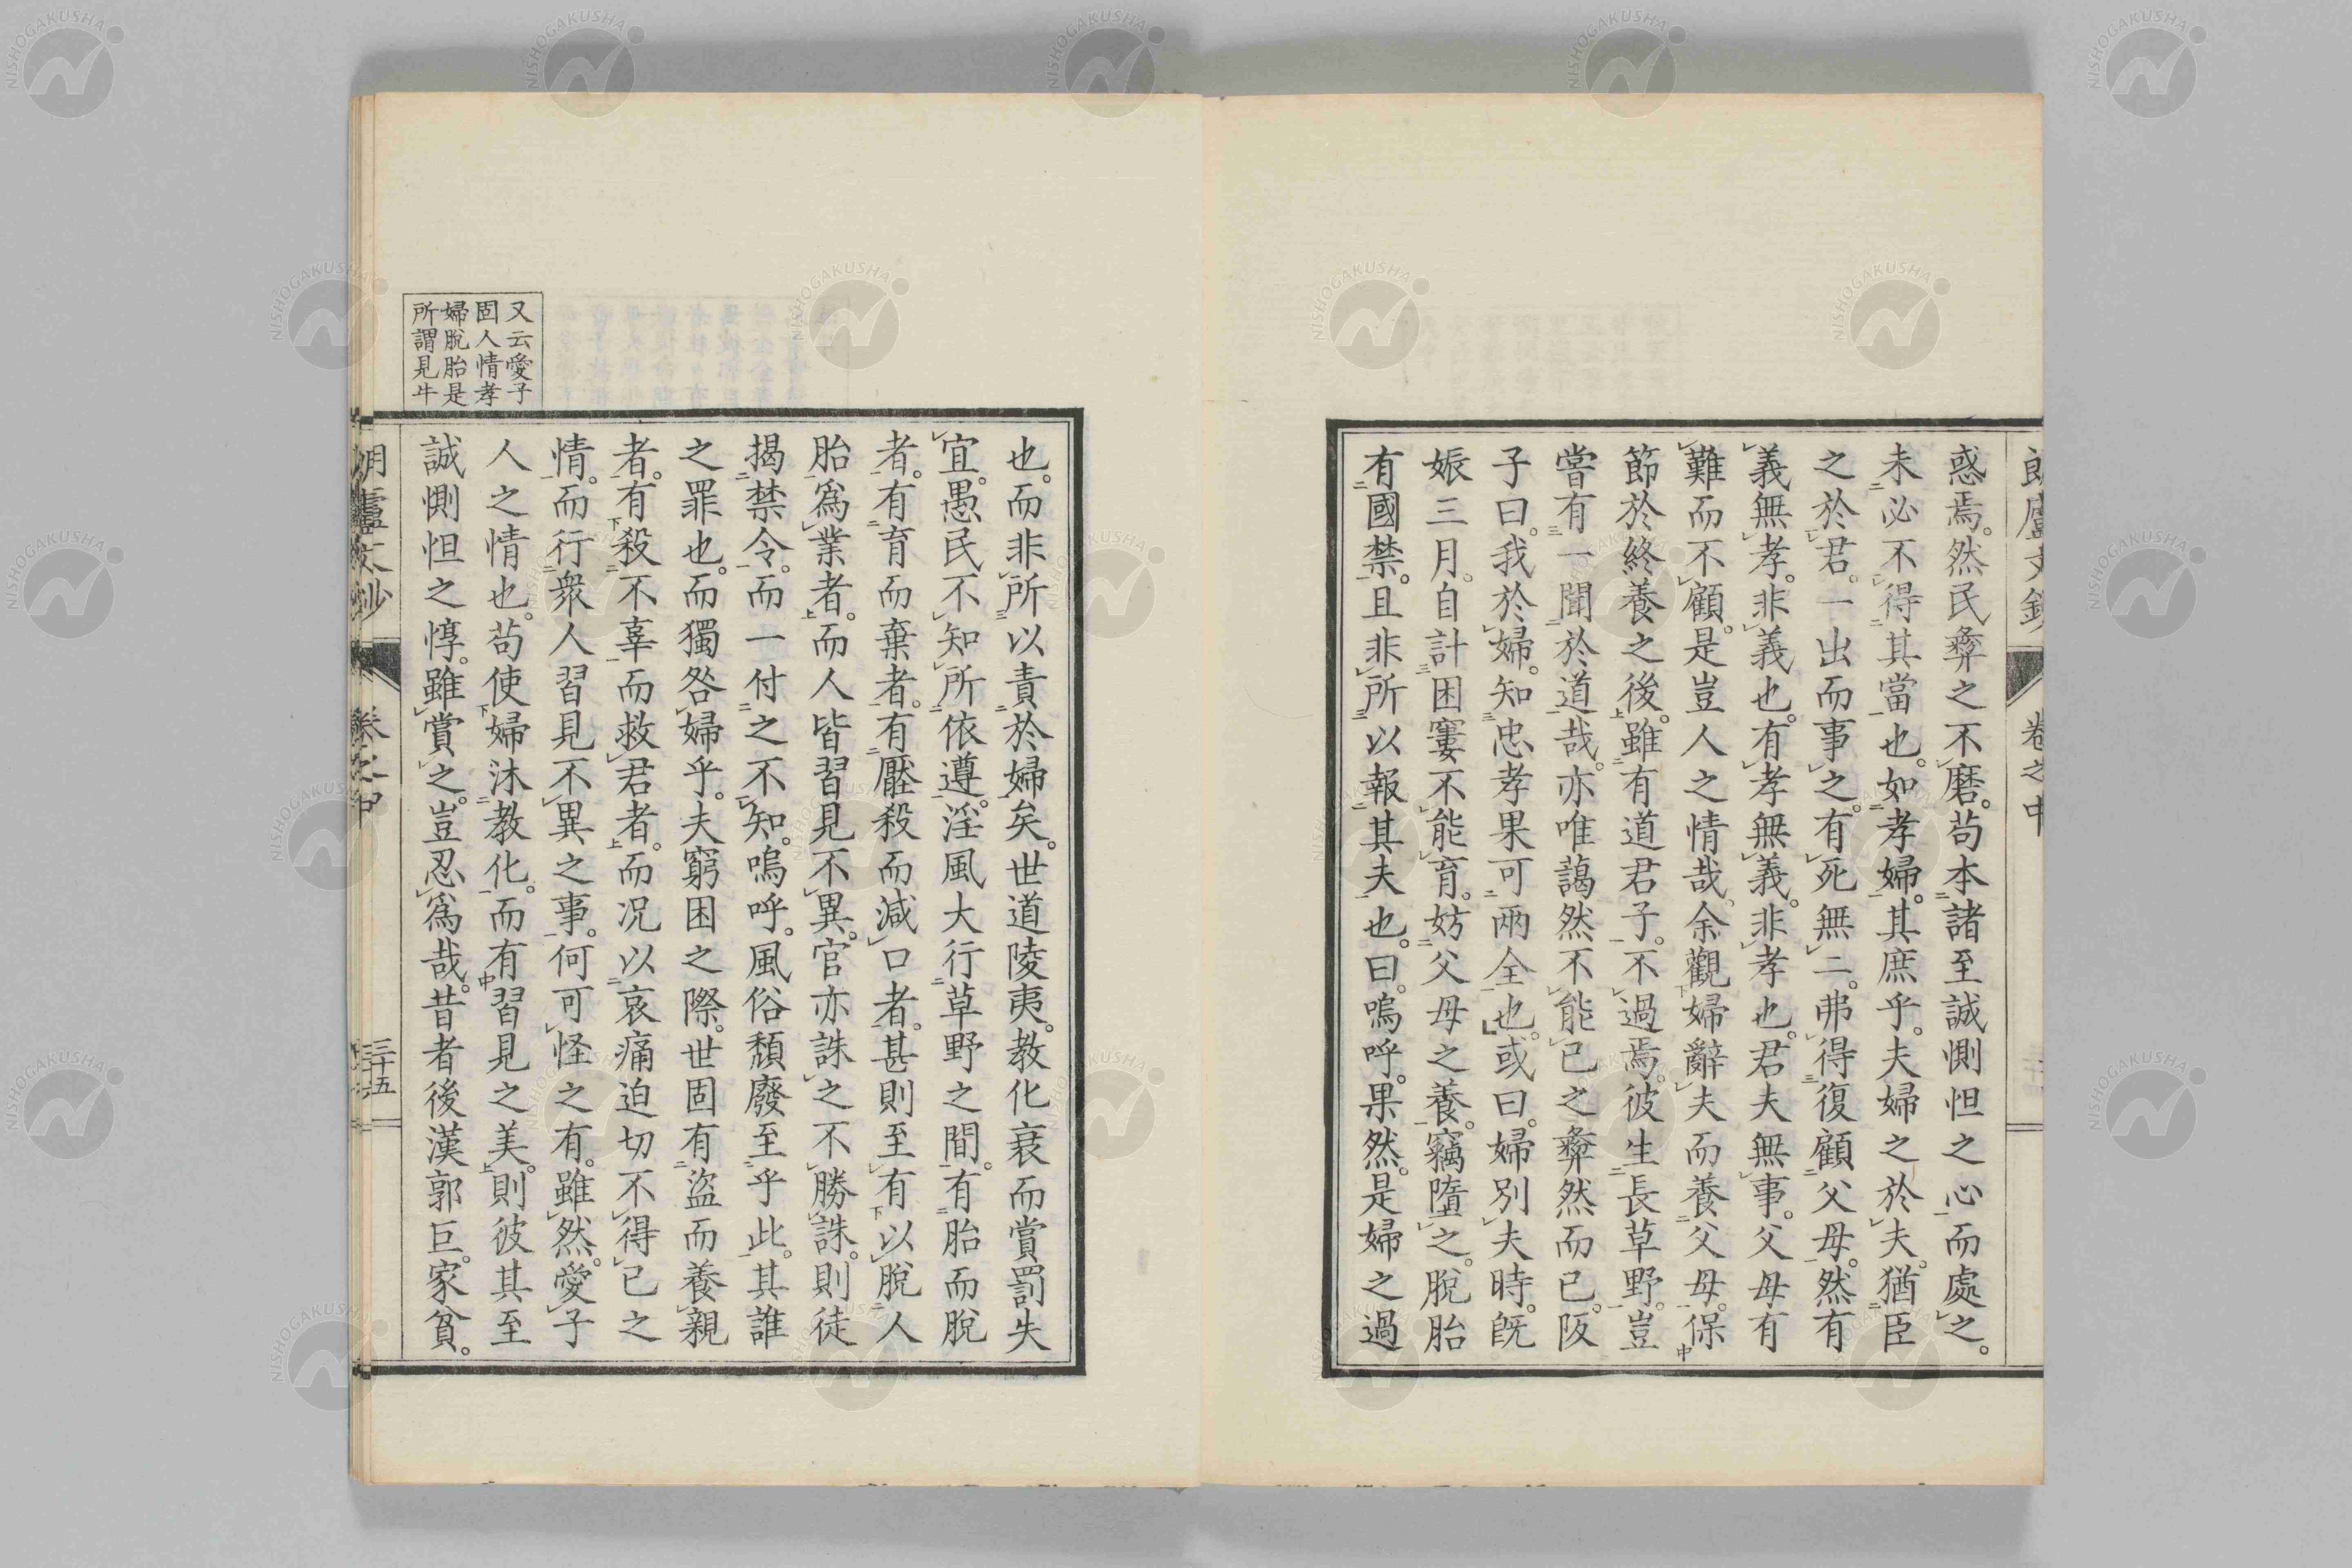 朗廬文鈔 卷之中
惑焉。然民彝之不磨。苟本諸至誠惻怛之心而處之。
未必不得其當也。如孝婦。其庶乎。夫婦之於夫。猶臣
之於君。一出而事之。有死無二。弗得復顧父母。然有
義無孝。非義也。有孝無義。非孝也。君夫無事。父母有
難而不顧。是豈人之情哉。余觀婦辭夫而養父母。保
節於終養之後。雖有道君子。不過焉。彼生長草野。豈
嘗有一聞於道哉。亦唯藹然不能已之彝然而已。阪
子曰。我於婦。知忠孝果可兩全也。或曰。婦別夫時。既
娠三月。自計困窶不能育。妨父母之養。竊墮之。脫胎
有國禁。且非所以報其夫也。曰。嗚呼。果然。是婦之過
也。而非所以責於婦矣。世道陵夷。教化衰而賞罰失
宜。愚民不知所依遵。淫風大行草野之間。有胎而脫
者。有育而棄者。有壓殺而減口者。甚則至有以脫人
胎爲業者。而人皆習見不異。官亦誅之不勝誅。則徒
揭禁令。而一付之不知。嗚呼。風俗頹廢至乎此。其誰
之罪也。而獨咎婦乎。夫窮困之際。世固有盜而養親
者。有殺不辜而救君者。而况以哀痛迫切不得已之
情。而行衆人習見不異之事。何可怪之有。雖然。愛子
人之情也。苟使婦沐教化。而有習見之美。則彼其至
誠惻怛之惇。雖賞之。豈忍爲哉。昔者後漢郭巨。家貧。
又云愛子
固人情孝
婦脫胎是
所謂見牛
朗廬文鈔 卷之中 三十五
NISHOGAKUSHA